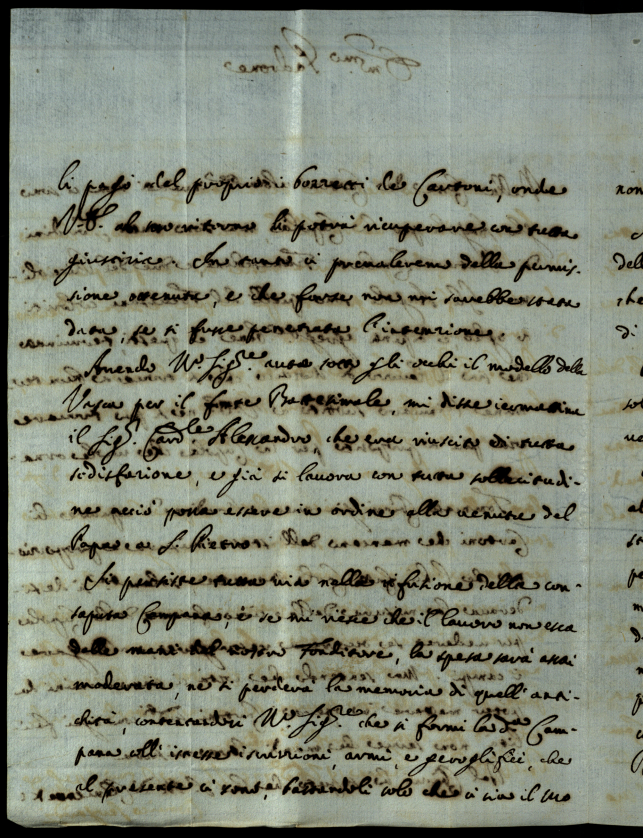 li passò del proprio i borretti de Cartoni, onde
V.S. al suo ritorno li potrà ricuperare con tutta
giustizia. In tanto ci prevaleremo della permis-
sione ottenuta, e che forse non mi sarebbe stata
data, se si fusse penetrata l'intenzione.
Avendo N.ro Sig.re auto sotto gli occhi il modello della
Vasca per il fonte Battesimale, mi disse iermattina
il Sig.r Card.le Alessandro, che era riuscito di tutta
sodisfazione, e già si lavora con tutta sollecitudi-
ne acciò possa essere in ordine alla venuta del
Papa a S. Pietro.
Si persiste tutta via nella rifusione della con-
saputa Campana, e se mi riesce che il lavoro non esca
dalle mani del nostro Fonditore, la spesa sarà assai
moderata, ne si perderà la memoria di quell'anti-
chità, contentandosi N.ro Sig.re che si formi la d.a Cam-
pana coll'istesse iscrizioni, armi, e geroglifici, che
al presente ci sono, bastandoli solo che ci sia il suo